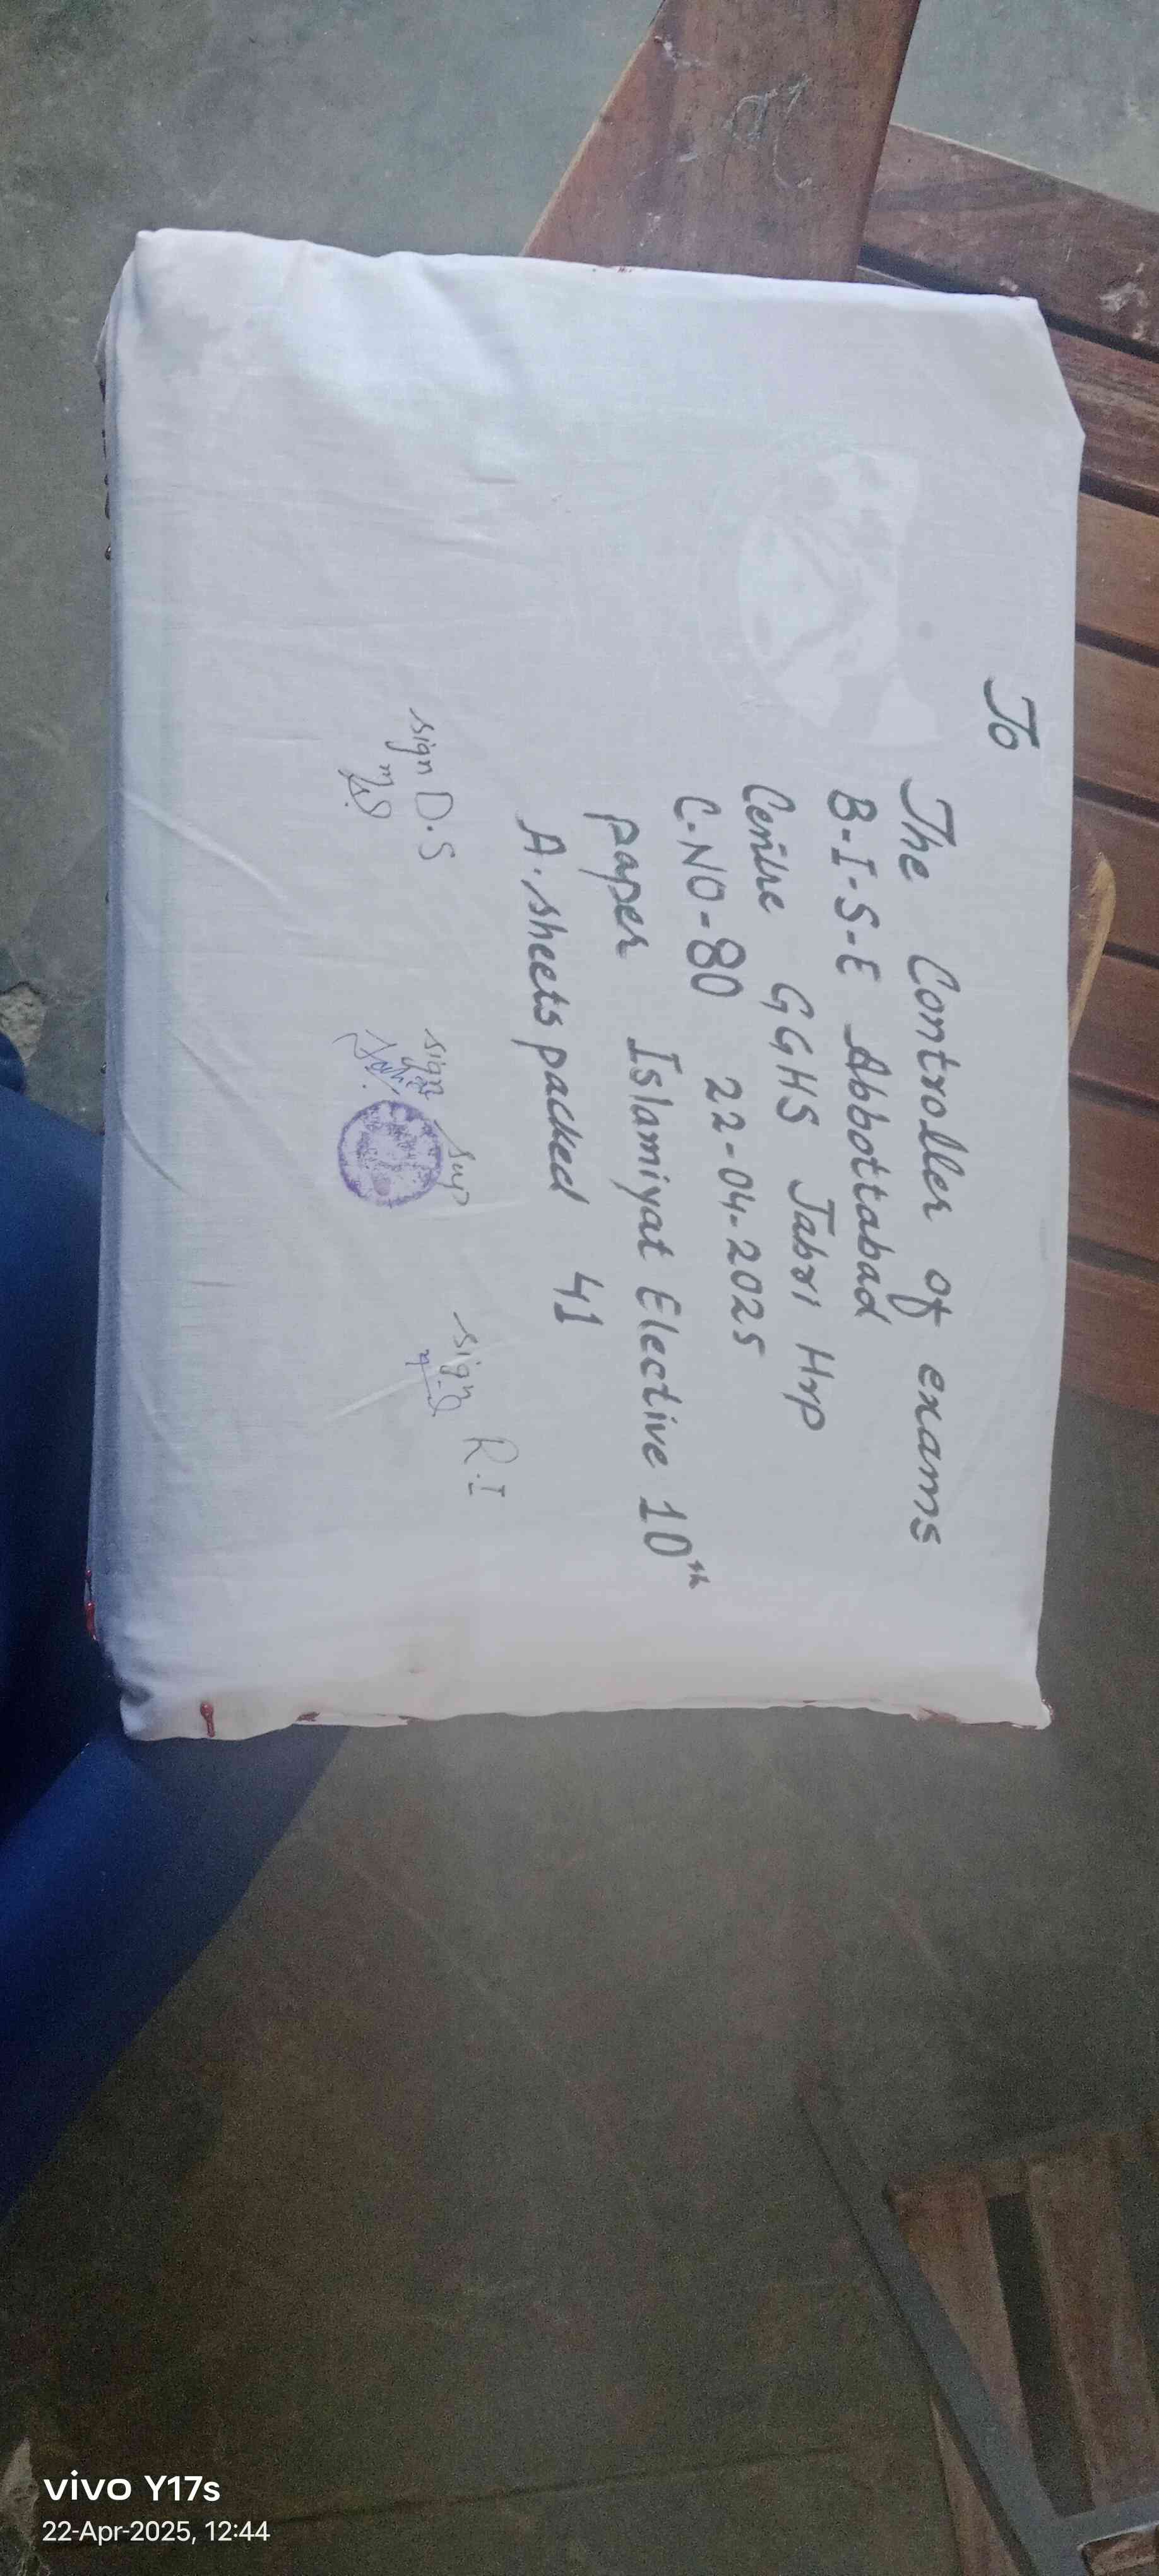 To
The Controller of exams
B-I-S-E Abbottabad
Centre GGHS Jabri Hrp
C.NO-80 22-04-2025
Paper Islamiyat Elective 10th
A.sheets packed 41
sign D.S
sign Sup
sign R.I
vivo Y17s
22-Apr-2025, 12:44